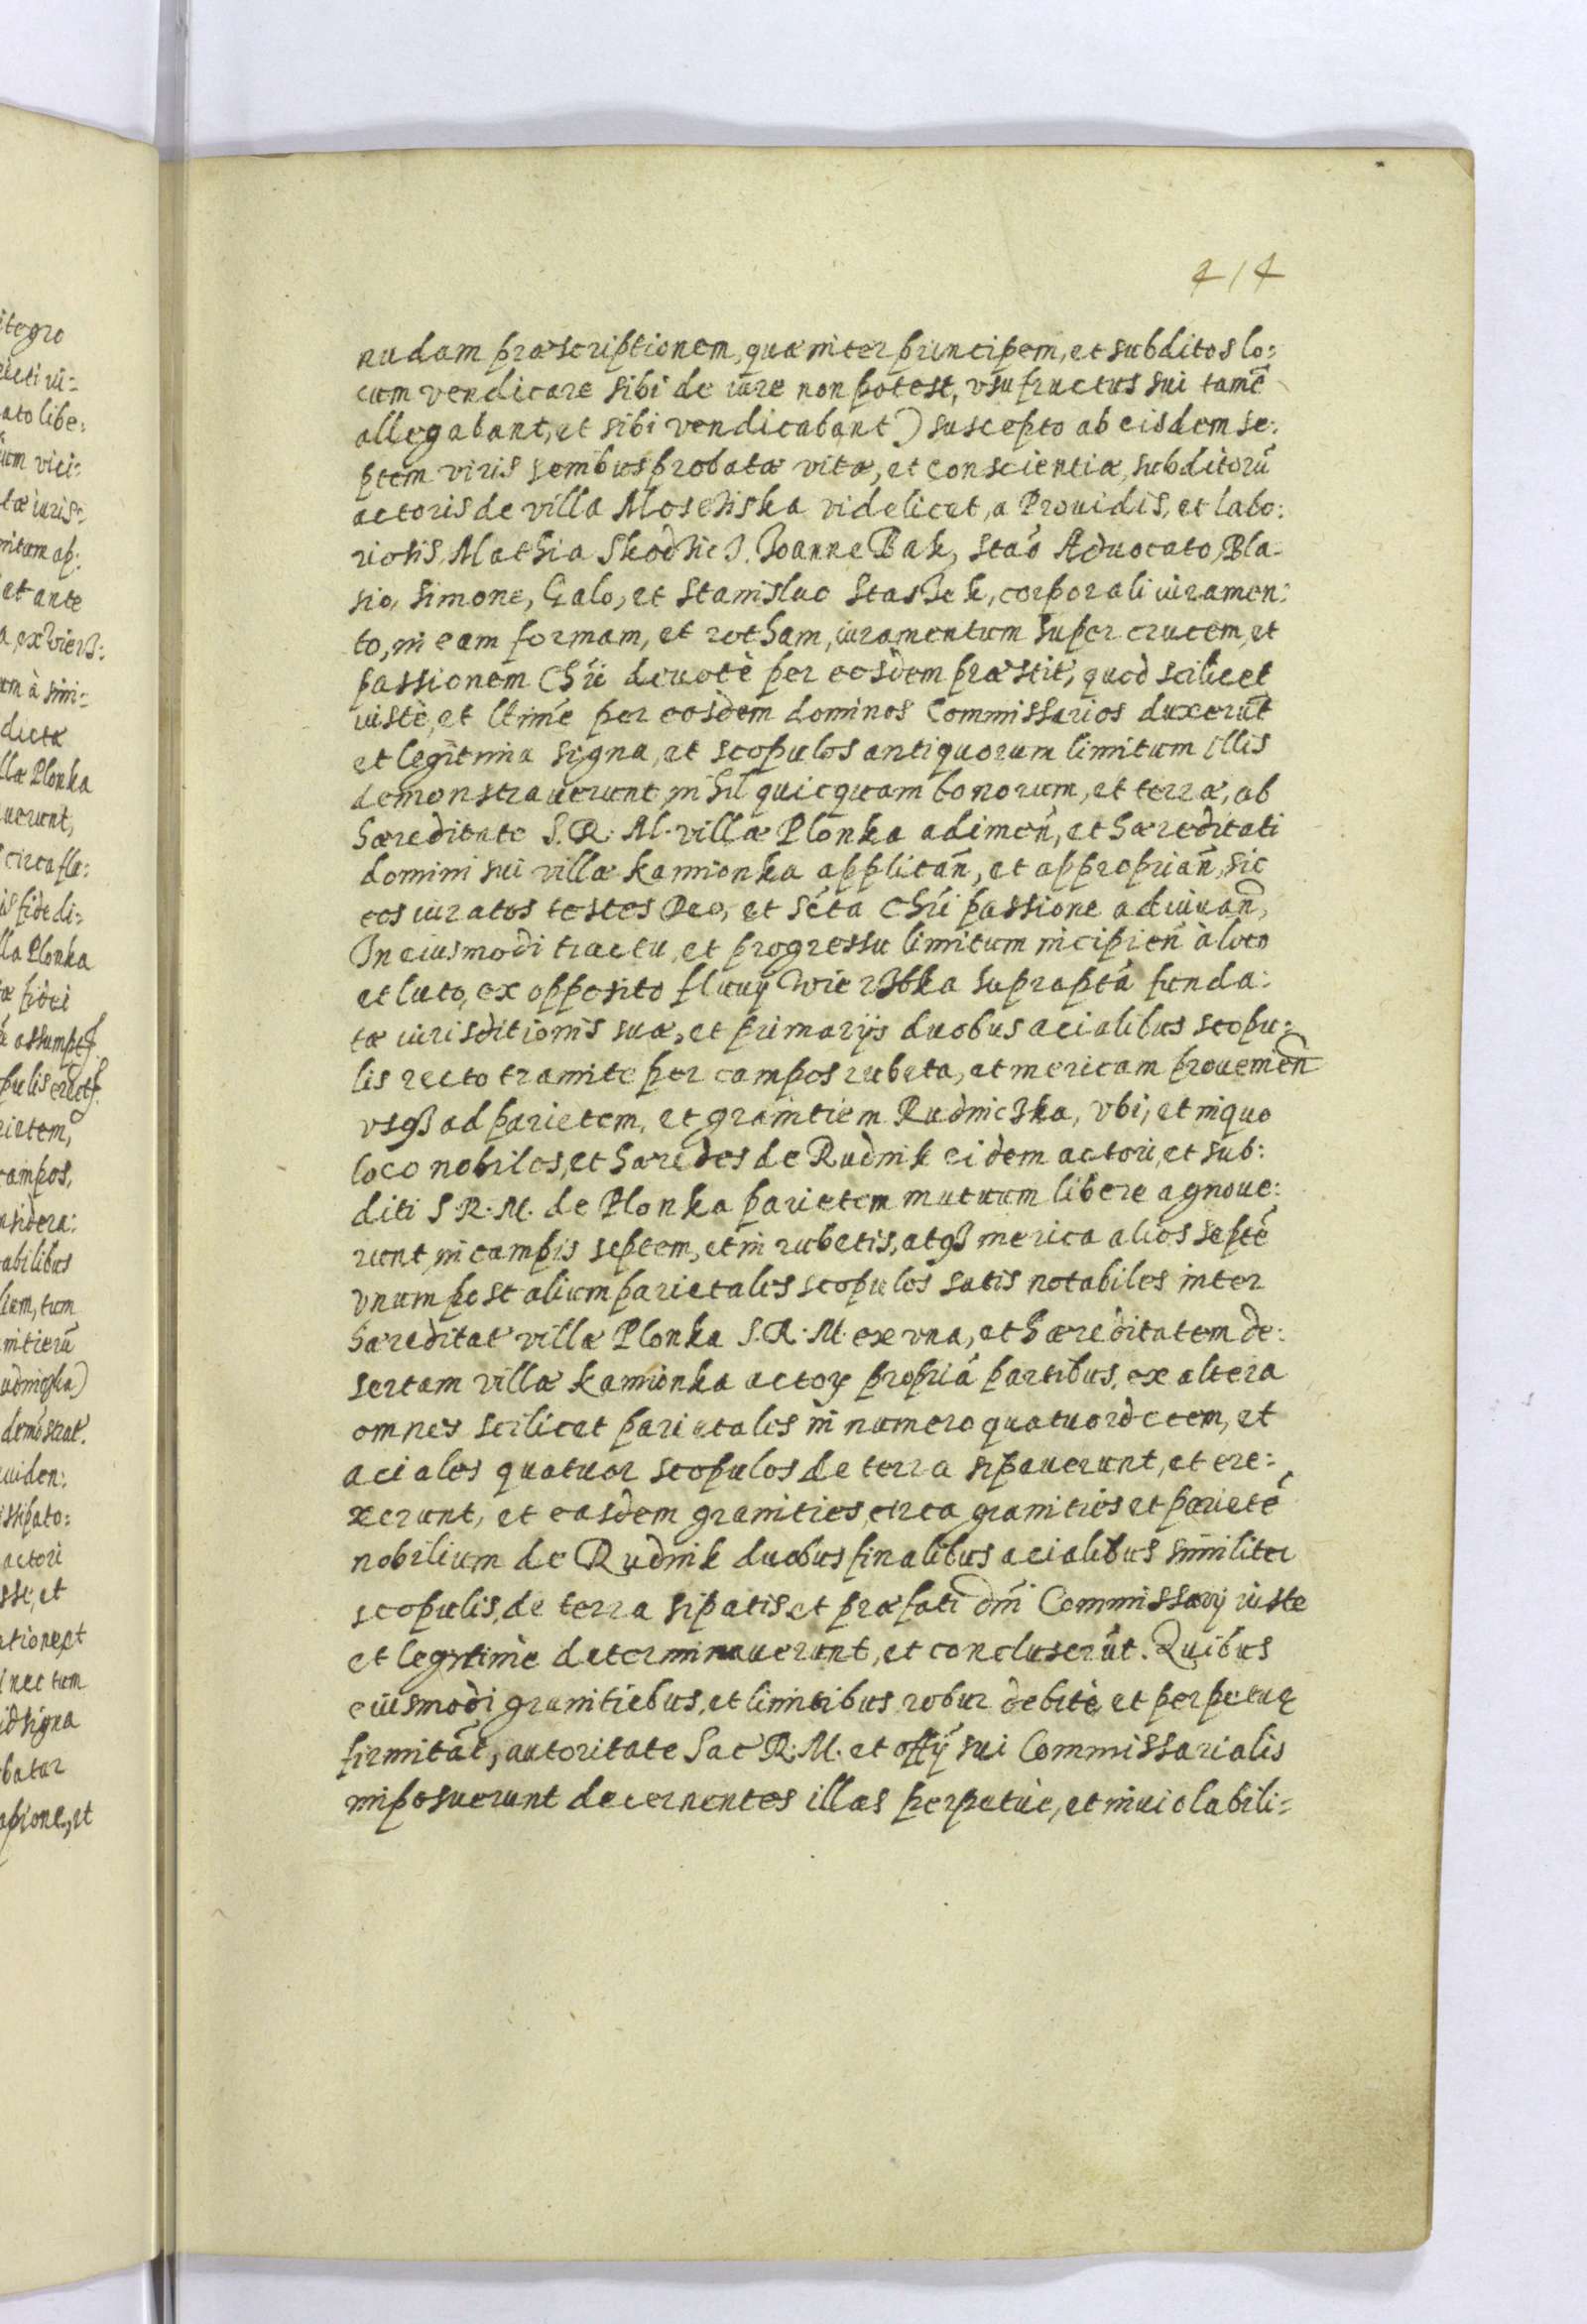 414
nudam præscriptionem, quæ inter principem, et subditos lo:
cum vendicare sibi de iure non potest, vsufructus sui tamē
allegabant, et sibi vendicabant) suscepto ab eisdem se:
ptem viris senibus probatæ vitæ, et conscientiæ, subditorū
actoris de villa Mosciska videlicet, a Prouidis, et labo:
riosis, Mathia Skodzic J. Joanne Bak, Stāo Aduocato, Bla-
sio, Simone, Galo, et Stanislao Staszek, corporali iuramen:
to, in eam formam, et rotham, iuramentum super crucem, et
passionem Chři deuotè per eosdem præstit, quod scilicet
iustè, et ltimē per eosdem dominos Commissarios duxerūt
et legitima signa, et scopulos antiquorum limitum illis
demonstrauerunt, nihil quicquam bonorum, et terræ, ab
hæreditate S. R. M. villæ Plonka adimen̄, et hæreditati
domini sui villæ Kamionka applican̄, et appropriān, sic
eos iuratos testes Deo, et sēta Chři passione adiuuan̄,
In eiusmodi tractu, et progressu limitum incipien̄ à loco
et luto, ex opposito fluuij Wierzbka supraptā funda:
tæ iurisditionis suæ, et primarijs duobus acialibus scopu:
lis recto tramite per campos rubeta, et mericam prouenien̄
vsqȝ ad parietem, et granitiem Rudniczka, vbi, et in quo
loco nobiles, et hæredes de Rudnik eidem actori, et sub:
diti S. R. M. de Plonka parietem mutuum libere agnoue:
runt, in campis septem, et in rubetis, atqȝ merica alios septē
vnum post alium parietales scopulos satis notabiles inter
hæreditat villæ Plonka S. R. M. ex vna, et hæreditatem de:
sertam villæ Kamionka actorȩ propriā partibus, ex altera
omnes scilicet parietales in numero quatuordecem, et
aciales quatuor scopulos de terra sipauerunt, et ere:
xerunt, et easdem granities, circa granities et parietē
nobilium de Rudnik duobus finalibus acialibus similiter
scopulis, de terra sipatis et præfati dn̄i Commissarij iuste
et legitimè determinauerunt, et concluserūt. Quibus
eiusmodi granitiebus, et limitibus robur debitè, et perpetuȩ
firmitāt, autoritate Sac R. M. et offij sui Commissarialis
imposuerunt decernentes illas perpetuè, et inuiolabili: